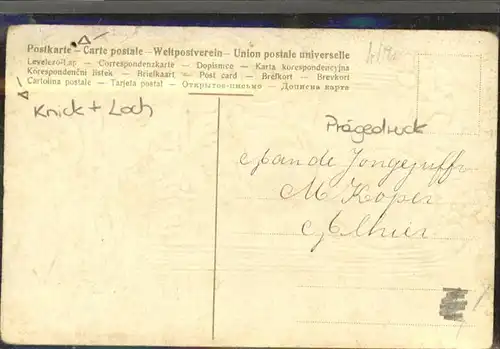 Postkarte – Carte postale – Weltpostverein – Union postale universelle
Levelező-Lap – Correspondenzkarte – Dopisnice – Karta korespondencyjna
Korespondenční lístek – Briefkaart – Post card – Brefkort – Brevkort
Cartolina postale – Tarjeta postal – Открытое-письмо – Дописна карте
Knick + Loch
Prägedruck
Aan de Jongejuffr
M Koper
Alhier